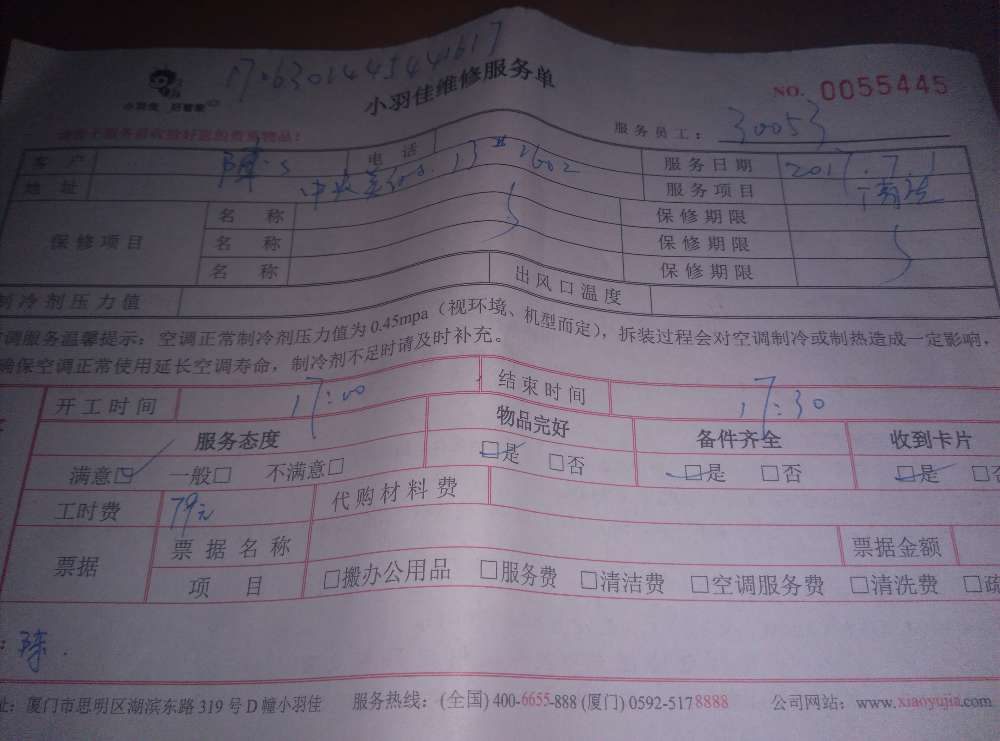 17063014454441617
小羽佳 好管家
小羽佳维修服务单
NO. 0055445
服务员工: 30053
客户 陈s 电话 服务日期 2017.7.1
地址 300.13# 2602 服务项目 清洗
保修项目 名称 保修期限
名称 保修期限
名称 保修期限
制冷剂压力值 出风口温度
调服务温馨提示: 空调正常制冷剂压力值为0.45mpa(视环境、机型而定),拆装过程会对空调制冷或制热造成一定影响,
确保空调正常使用延长空调寿命,制冷剂不足时请及时补充。
开工时间 17:00 结束时间 17:30
服务态度 物品完好 备件齐全 收到卡片
满意☑ 一般□ 不满意□ ☑是 □否 ☑是 □否 ☑是 □否
工时费 79元 代购材料费
票据 票据名称 票据金额
项目 □搬办公用品 □服务费 □清洁费 □空调服务费 □清洗费 □疏
: 陈.
址: 厦门市思明区湖滨东路319号D幢小羽佳 服务热线: (全国) 400-6655-888 (厦门) 0592-5178888 公司网站: www.xiaoyujia.com